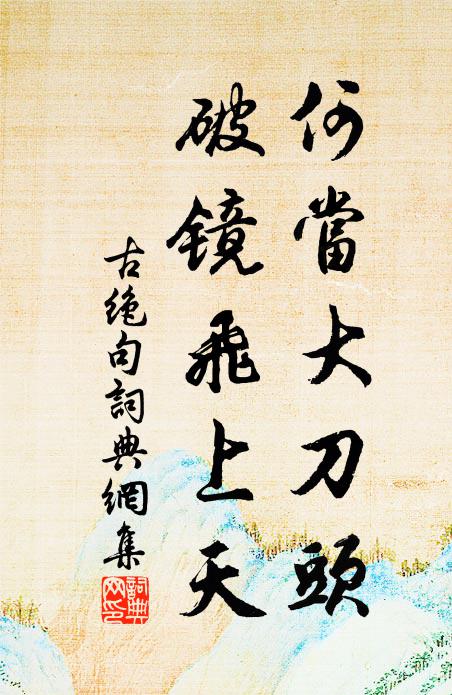 何當大刀頭
破镜飛上天
古绝句詞典網集
詞典网印